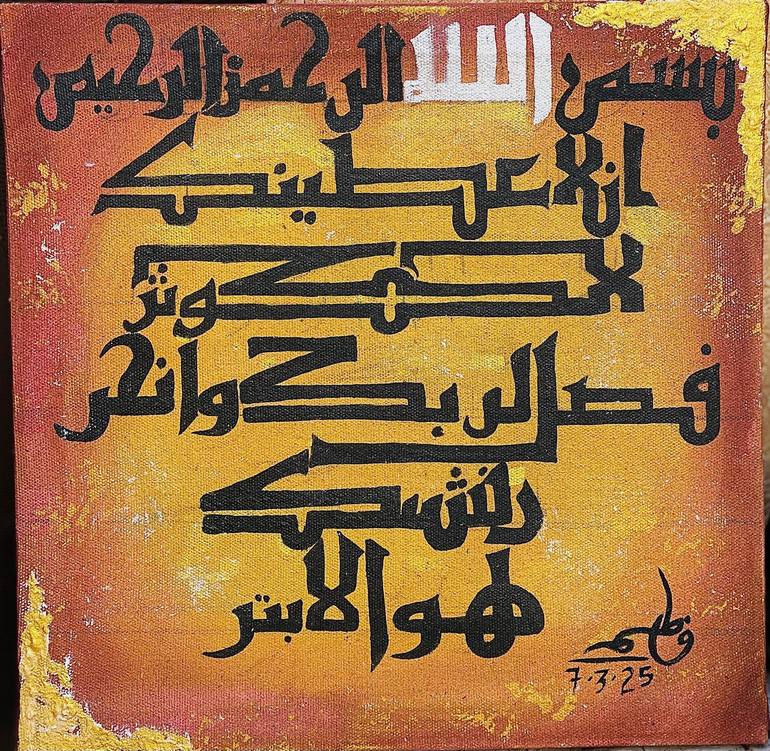 بسم الله الرحمن الرحيم
انا اعطينك
الكوثر
فصل لربك وانحر
هو الابتر
7.3.25